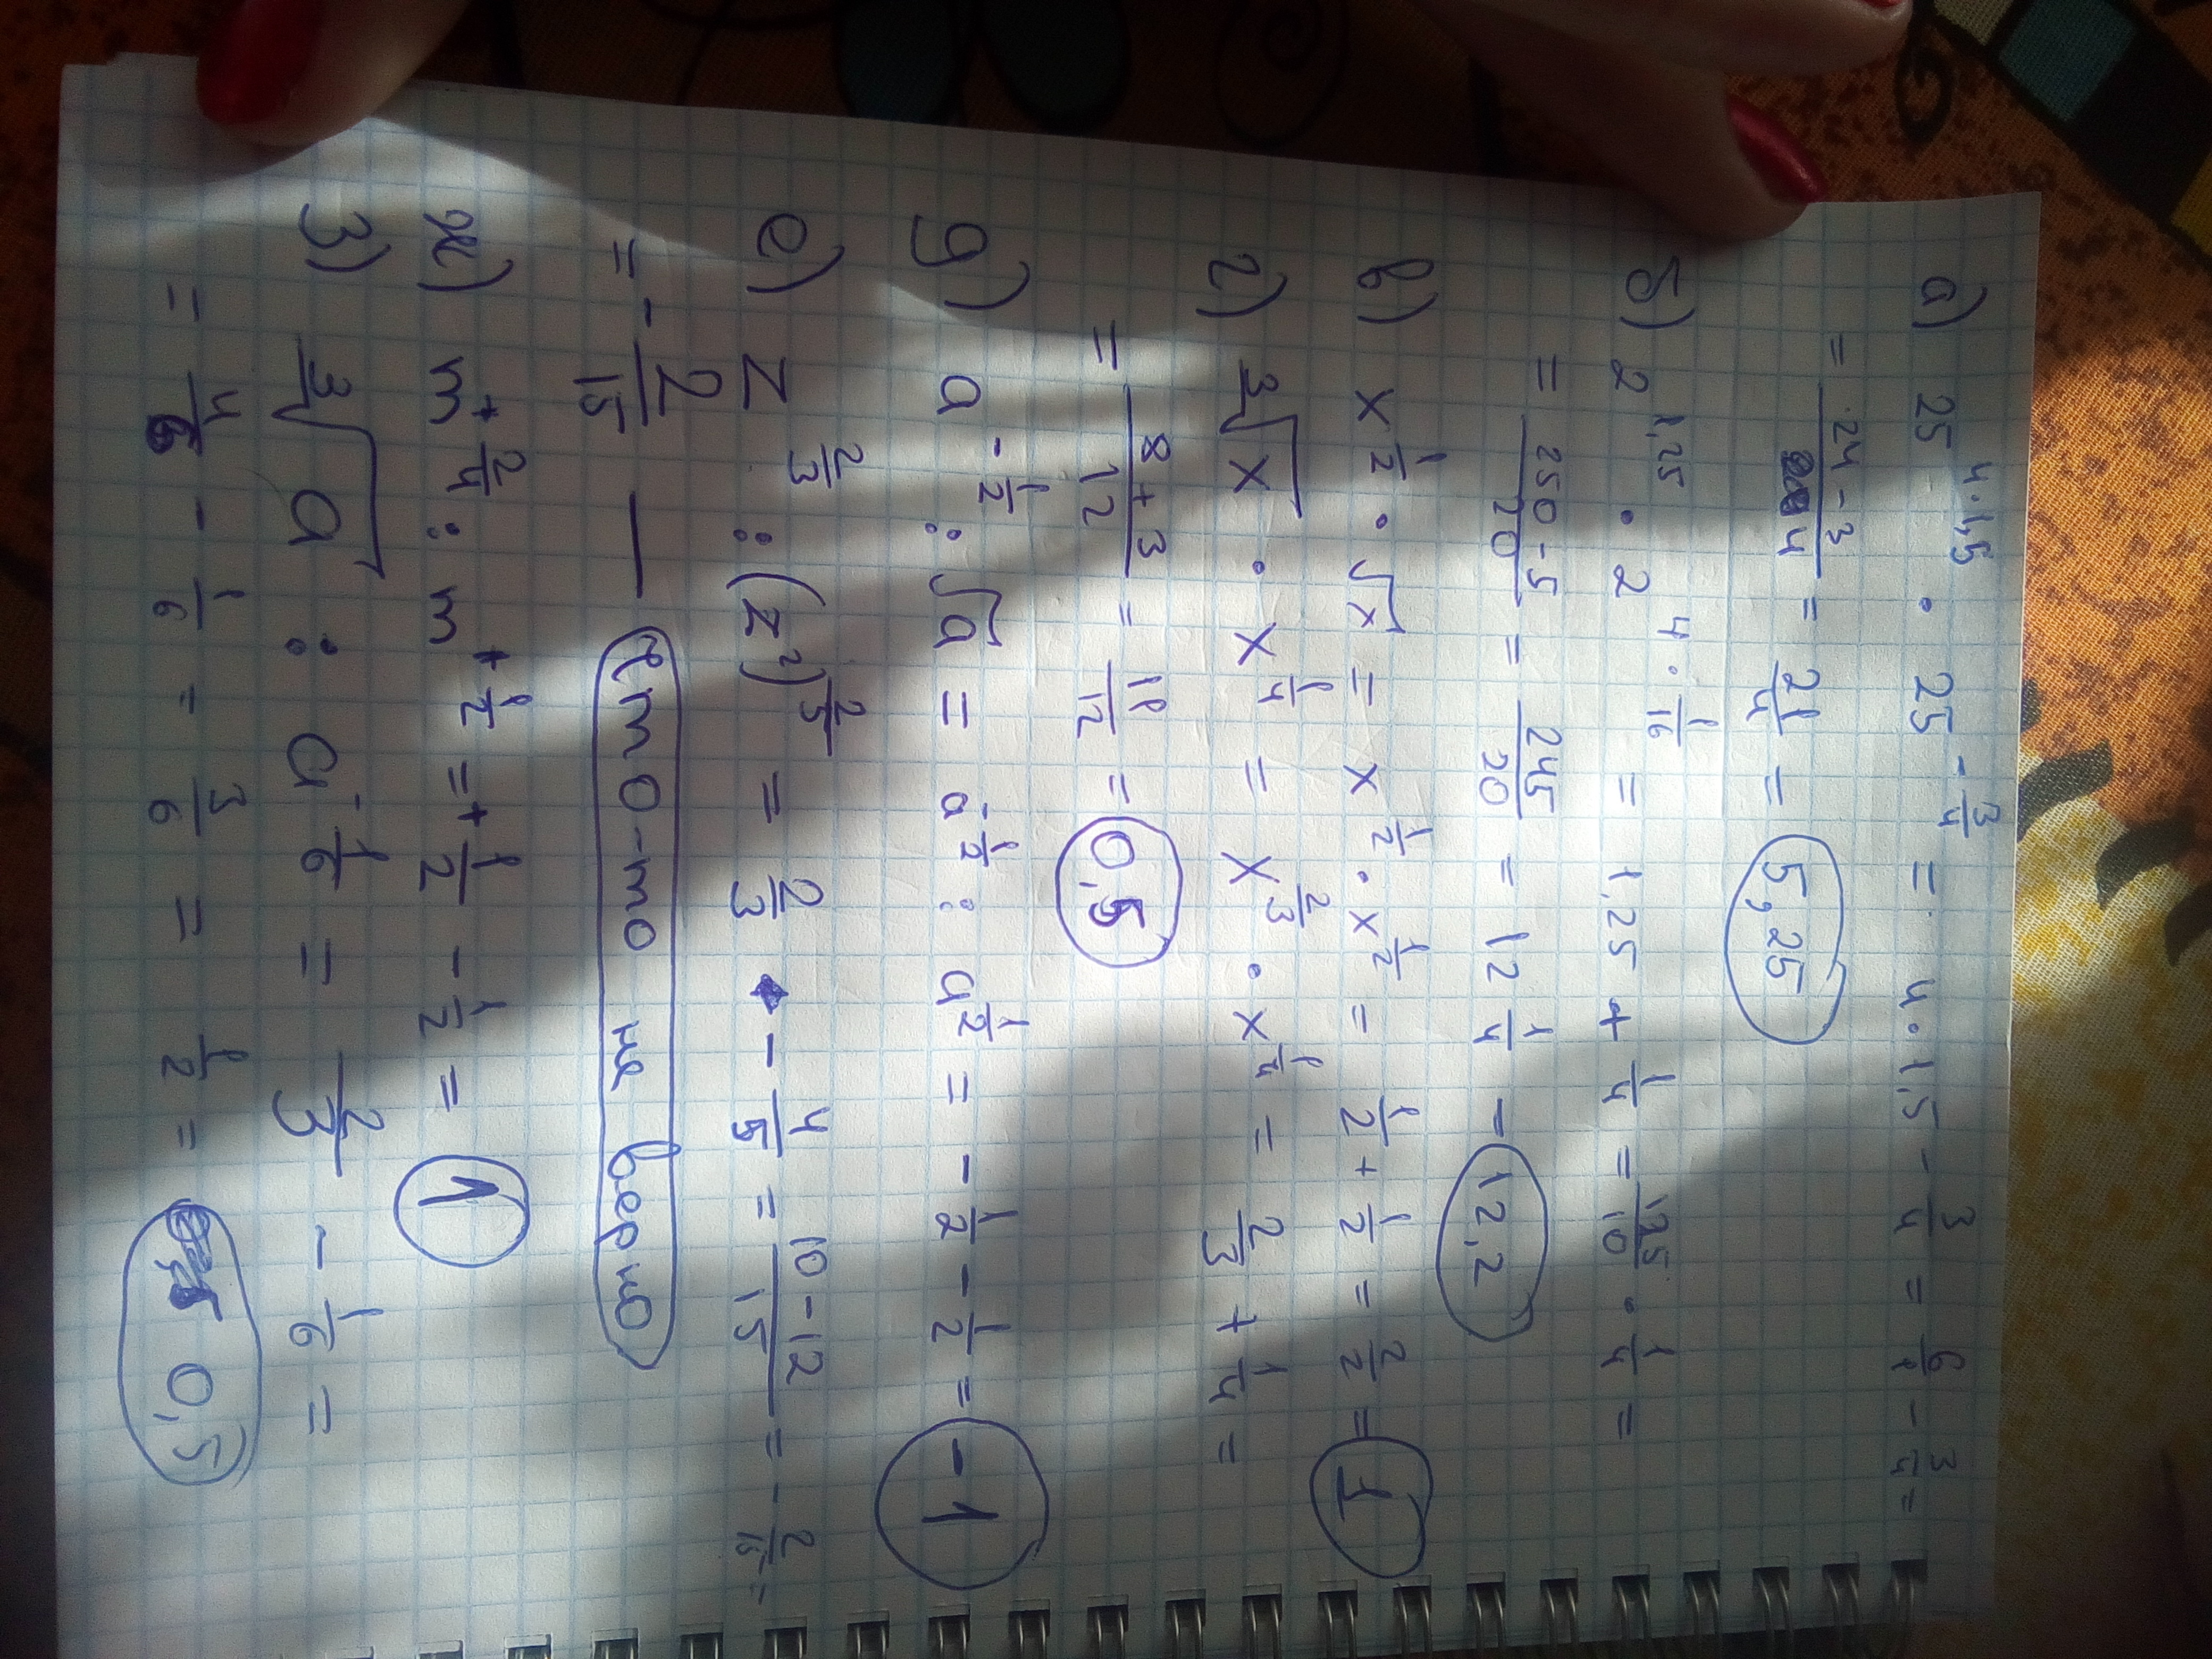 а) 25^{4·1,5} · 25^{-\frac{3}{4}} = 4·1,5 - \frac{3}{4} = \frac{6}{1} - \frac{3}{4} =
= \frac{24-3}{4} = \frac{21}{4} = 5,25
б) 2^{1,25} · 2^{4·\frac{1}{16}} = 1,25 + \frac{1}{4} = \frac{125}{10} · \frac{1}{4} =
= \frac{250-5}{20} = \frac{245}{20} = 12\frac{1}{4} - 12,2
в) x^{\frac{1}{2}} · √x = x^{\frac{1}{2}} · x^{\frac{1}{2}} = \frac{1}{2} + \frac{1}{2} = \frac{2}{2} = 1
г) ∛x · x^{\frac{1}{4}} = x^{\frac{2}{3}} · x^{\frac{1}{4}} = \frac{2}{3} + \frac{1}{4} =
= \frac{8+3}{12} = \frac{11}{12} = 0,5
д) a^{-\frac{1}{2}} : √a = a^{-\frac{1}{2}} : a^{\frac{1}{2}} = -\frac{1}{2} - \frac{1}{2} = -1
е) z^{\frac{2}{3}} : (z^2)^{\frac{2}{5}} = \frac{2}{3} - \frac{4}{5} = \frac{10-12}{15} = -\frac{2}{15} =
= -\frac{2}{15} — что-то не верно
ж) m^{+\frac{2}{4}} : m^{+\frac{1}{2}} = +\frac{1}{2} - \frac{1}{2} = 1
з) ∛a : a^{-\frac{1}{6}} = \frac{2}{3} - \frac{1}{6} =
= \frac{4}{6} - \frac{1}{6} = \frac{3}{6} = \frac{1}{2} = 0,5